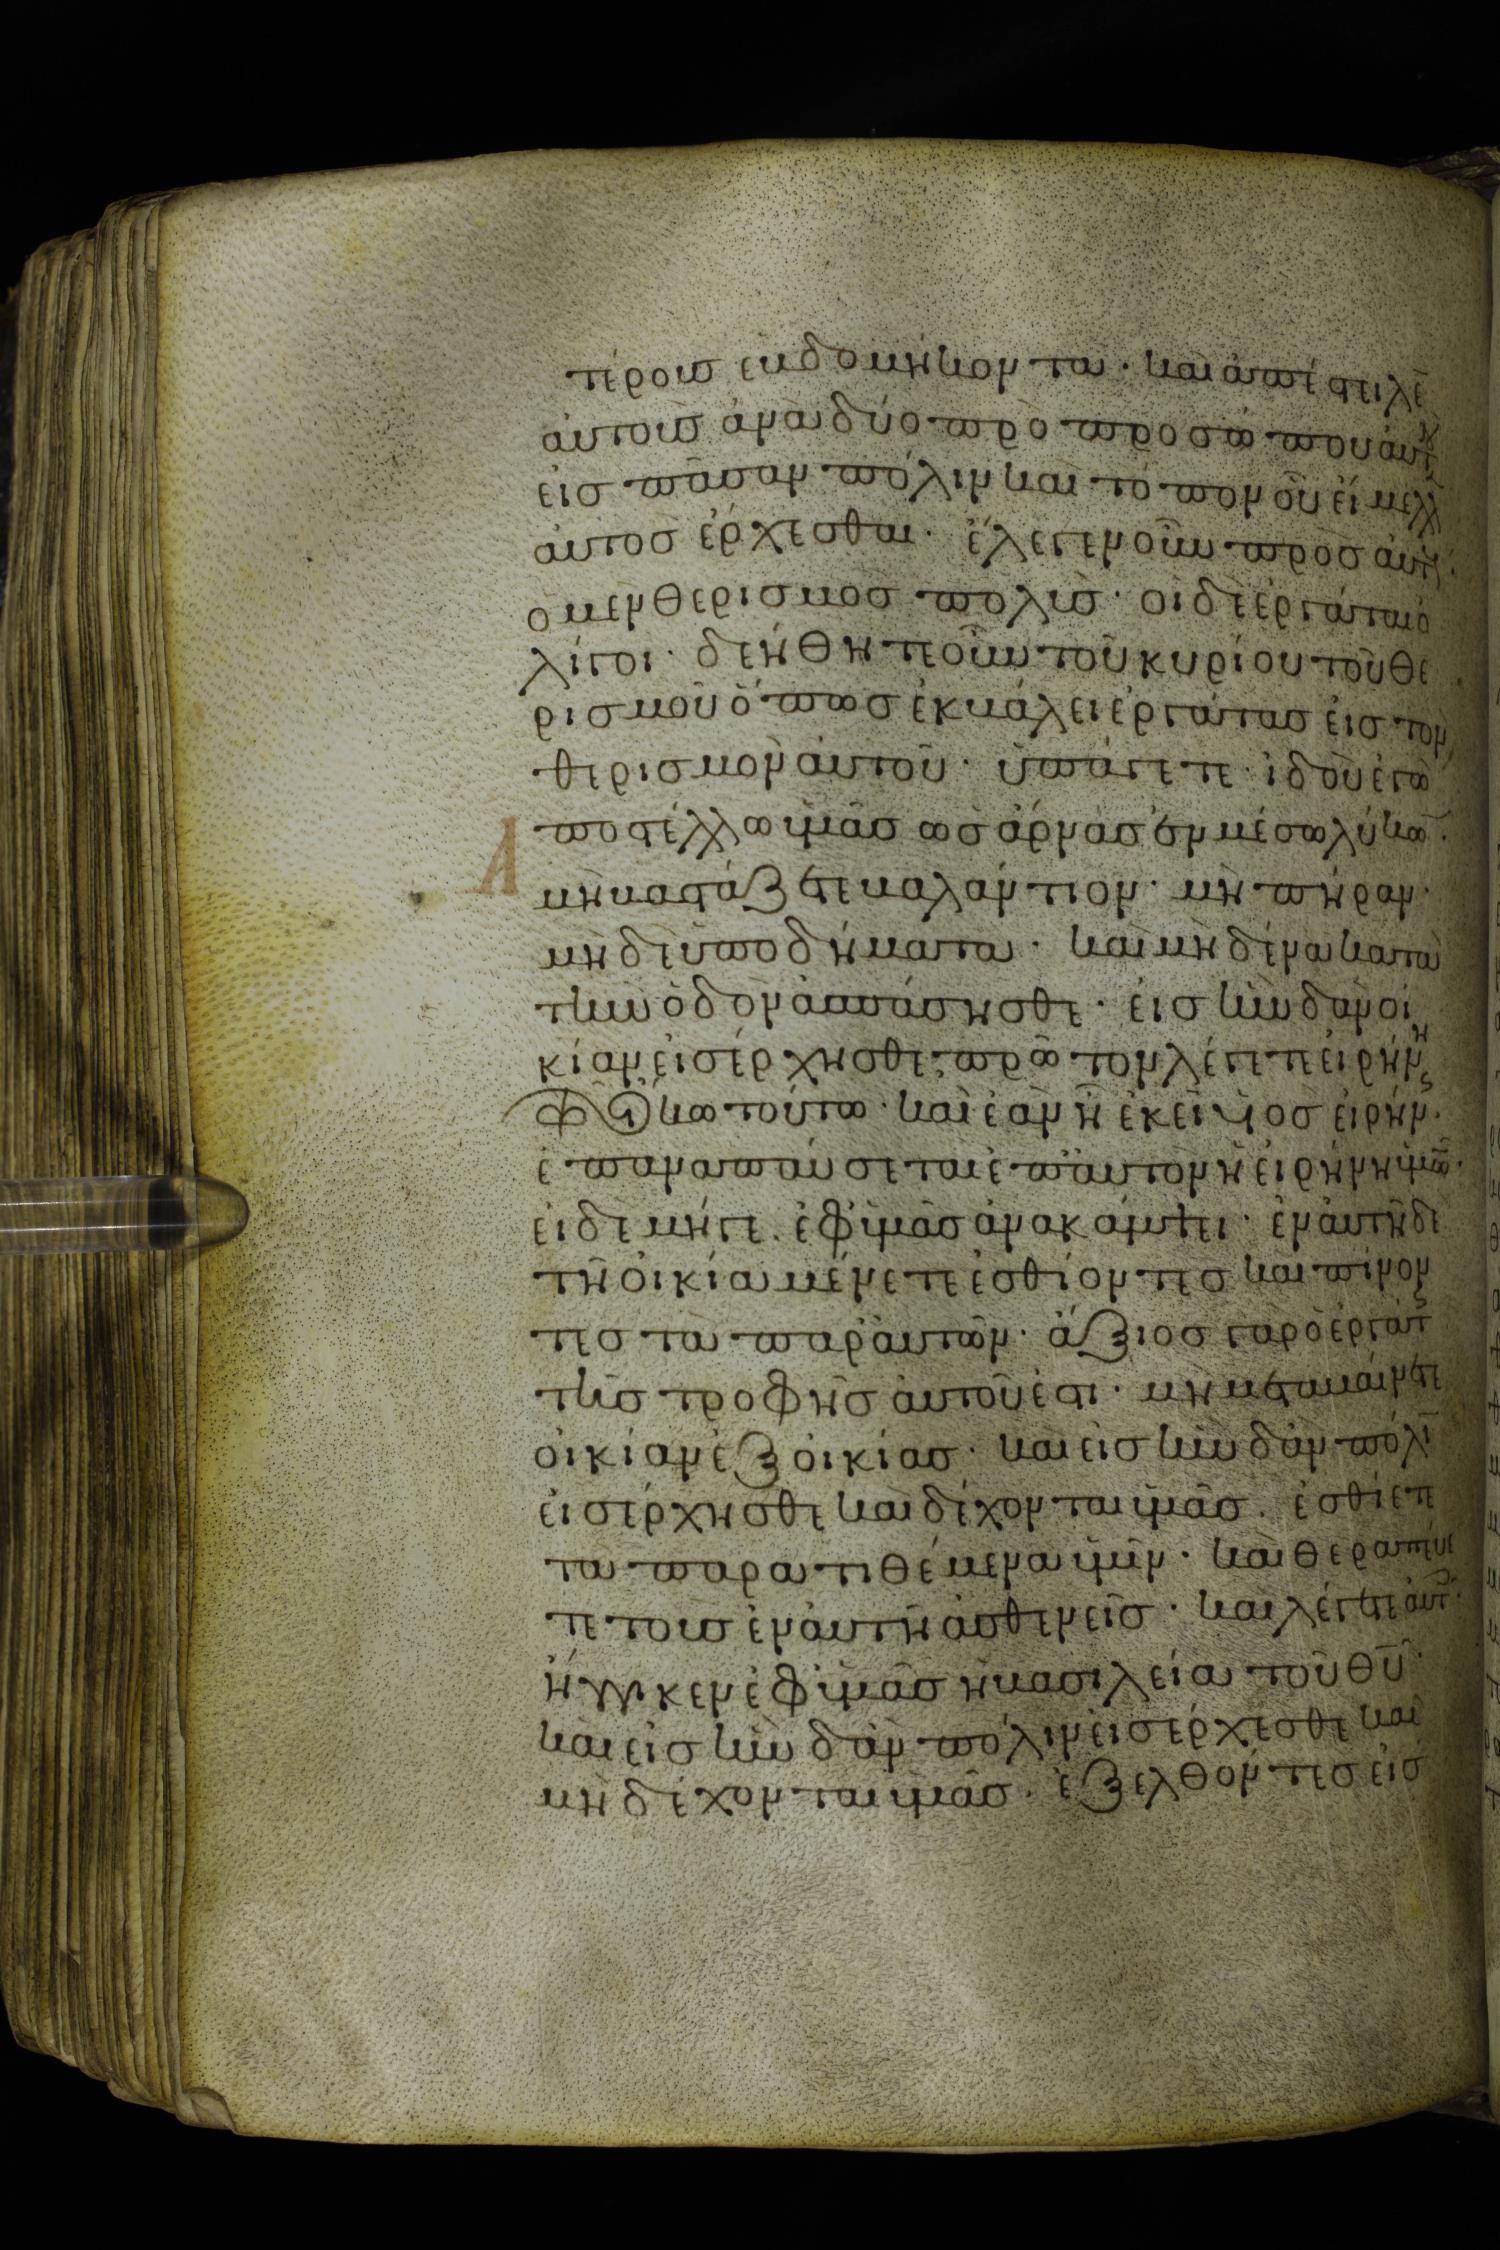 τέροις ἑβδομήκοντα · καὶ ἀπέστειλε̅
αὐτοὺς ἀνὰ δύο πρὸ προσώπου αὐτ
εἰς πᾶσαν πόλιν καὶ τόπον οὗ ἔμελλ
αὐτὸς ἔρχεσθαι · ἔλεγεν οὖν πρὸς αὐτ ·
ὁ μὲν θερισμὸς πολὺς · οἱ δὲ ἐργάται ὀ
λίγοι · δεήθητε οὖν τοῦ κυρίου τοῦ θε
ρισμοῦ ὅπως ἐκβάλει ἐργάτας εἰς τὸν
θερισμὸν αὐτοῦ · ὑπάγετε · ἰδοὺ ἐγὼ
ἀποστέλλω ὑμᾶς ὡς ἄρνας ἐν μέσω λύκω̅ ·
μὴ βαστάζετε βαλάντιον · μὴ πήραν ·
μὴ δὲ ὑποδήματα · καὶ μηδένα κατὰ
τὴν ὁδὸν ἀσπάσησθε · εἰς ἣν δ' ἂν οἰ
κίαν εἰσέρχησθε · πρῶτον λέγετε εἰρήνη
τῶ οἴκω τούτω · καὶ ἐὰν ἦ ἐκεῖ υἱὸς εἰρήν ·
ἐπαναπαύσεται ἐπ' αὐτὸν ἡ εἰρήνη ὑμῶ̅ ·
εἰ δὲ μήγε · ἐφ' ὑμᾶς ἀνακάμψει · ἐν αὐτῆ δὲ
τῆ οἰκία μένετε ἐσθίοντες καὶ πίνον
τες τὰ παρ' αὐτῶν · ἄξιος γὰρ ὁ ἐργάτ
τῆς τροφῆς αὐτοῦ ἐστι · μὴ μεταβαίνετε
οἰκίαν ἐξ οἰκίας · καὶ εἰς ἣν δ' ἂν πόλι̅
εἰσέρχησθε καὶ δέχονται ὑμᾶς · ἐσθίετε
τὰ παρατιθέμενα ὑμῖν · καὶ θεραπεύε
τε τοὺς ἐν αὐτῆ ἀσθενεῖς · καὶ λέγετε αὐτ ·
ἤγγικεν ἐφ' ὑμᾶς ἡ βασιλεία τοῦ θ̅υ̅ ·
καὶ εἰς ἣν δ' ἂν πόλιν εἰσέρχεσθε καὶ
μὴ δέχονται ὑμᾶς · ἐξελθόντες εἰς